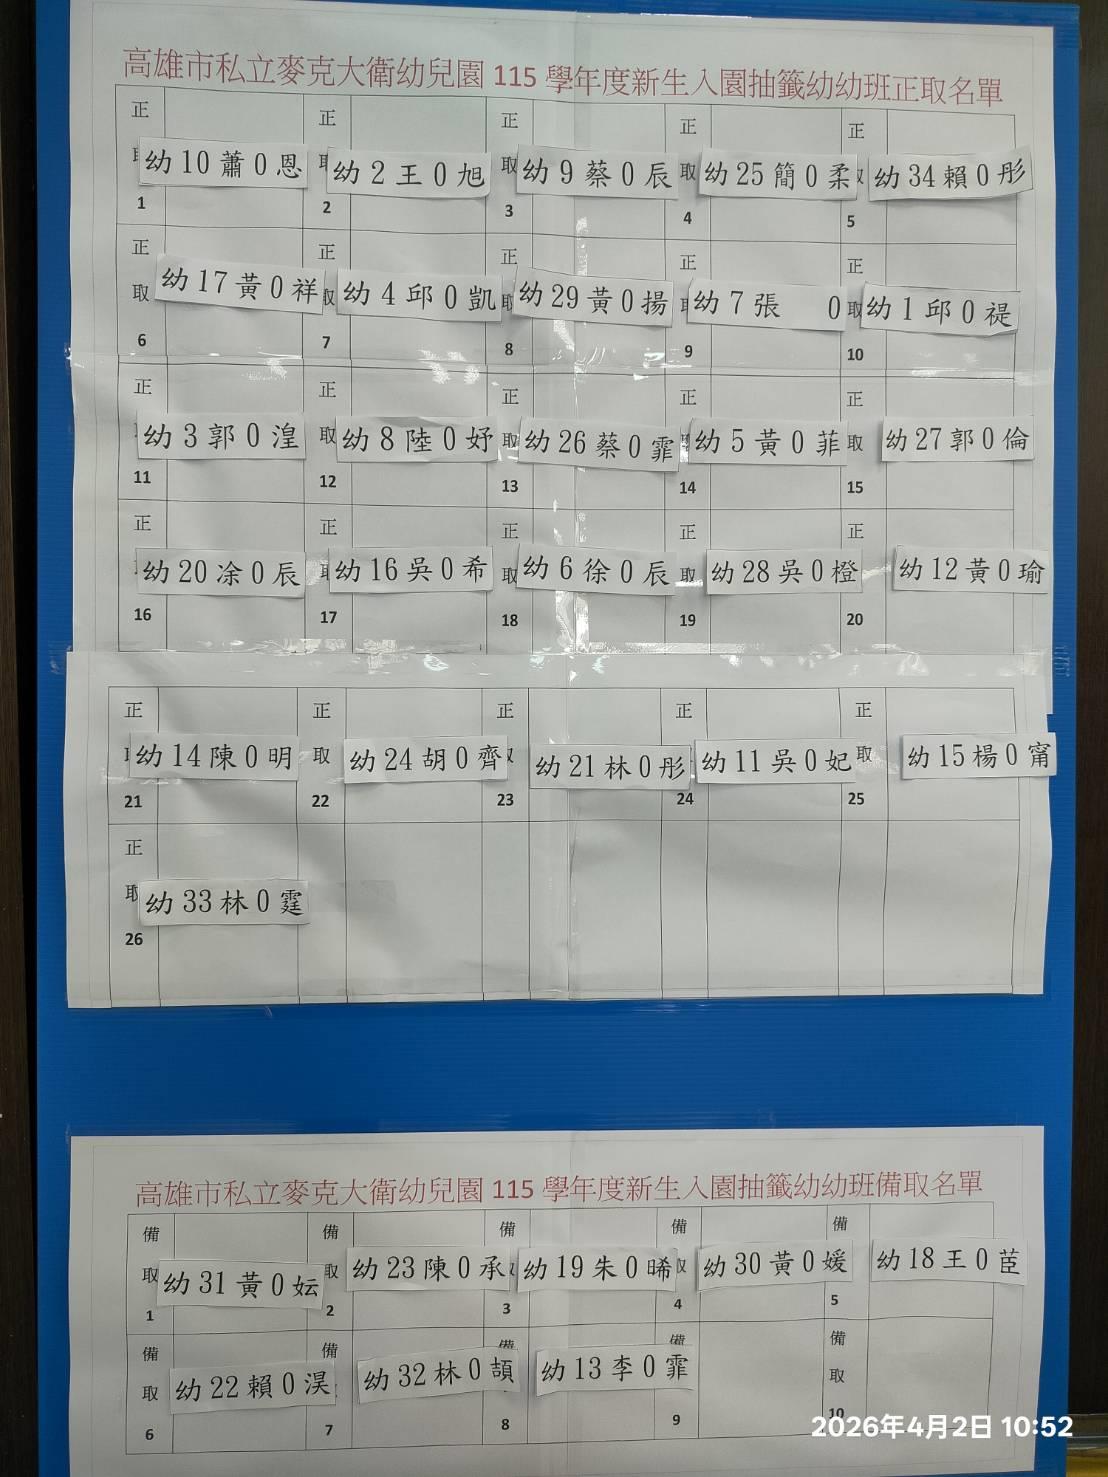 高雄市私立麥克大衛幼兒園 115 學年度新生入園抽籤幼幼班正取名單
正取 1 幼 10 蕭 0 恩
正取 2 幼 2 王 0 旭
正取 3 幼 9 蔡 0 辰
正取 4 幼 25 簡 0 柔
正取 5 幼 34 賴 0 彤
正取 6 幼 17 黃 0 祥
正取 7 幼 4 邱 0 凱
正取 8 幼 29 黃 0 揚
正取 9 幼 7 張 0
正取 10 幼 1 邱 0 禔
正取 11 幼 3 郭 0 湟
正取 12 幼 8 陸 0 妤
正取 13 幼 26 蔡 0 霏
正取 14 幼 5 黃 0 菲
正取 15 幼 27 郭 0 倫
正取 16 幼 20 凃 0 辰
正取 17 幼 16 吳 0 希
正取 18 幼 6 徐 0 辰
正取 19 幼 28 吳 0 橙
正取 20 幼 12 黃 0 瑜
正取 21 幼 14 陳 0 明
正取 22 幼 24 胡 0 齊
正取 23 幼 21 林 0 彤
正取 24 幼 11 吳 0 妃
正取 25 幼 15 楊 0 甯
正取 26 幼 33 林 0 霆
高雄市私立麥克大衛幼兒園 115 學年度新生入園抽籤幼幼班備取名單
備取 1 幼 31 黃 0 妘
備取 2 幼 23 陳 0 承
備取 3 幼 19 朱 0 晞
備取 4 幼 30 黃 0 媛
備取 5 幼 18 王 0 茞
備取 6 幼 22 賴 0 淏
備取 7 幼 32 林 0 頡
備取 8 幼 13 李 0 霏
備 9
備取 10
2026年4月2日 10:52